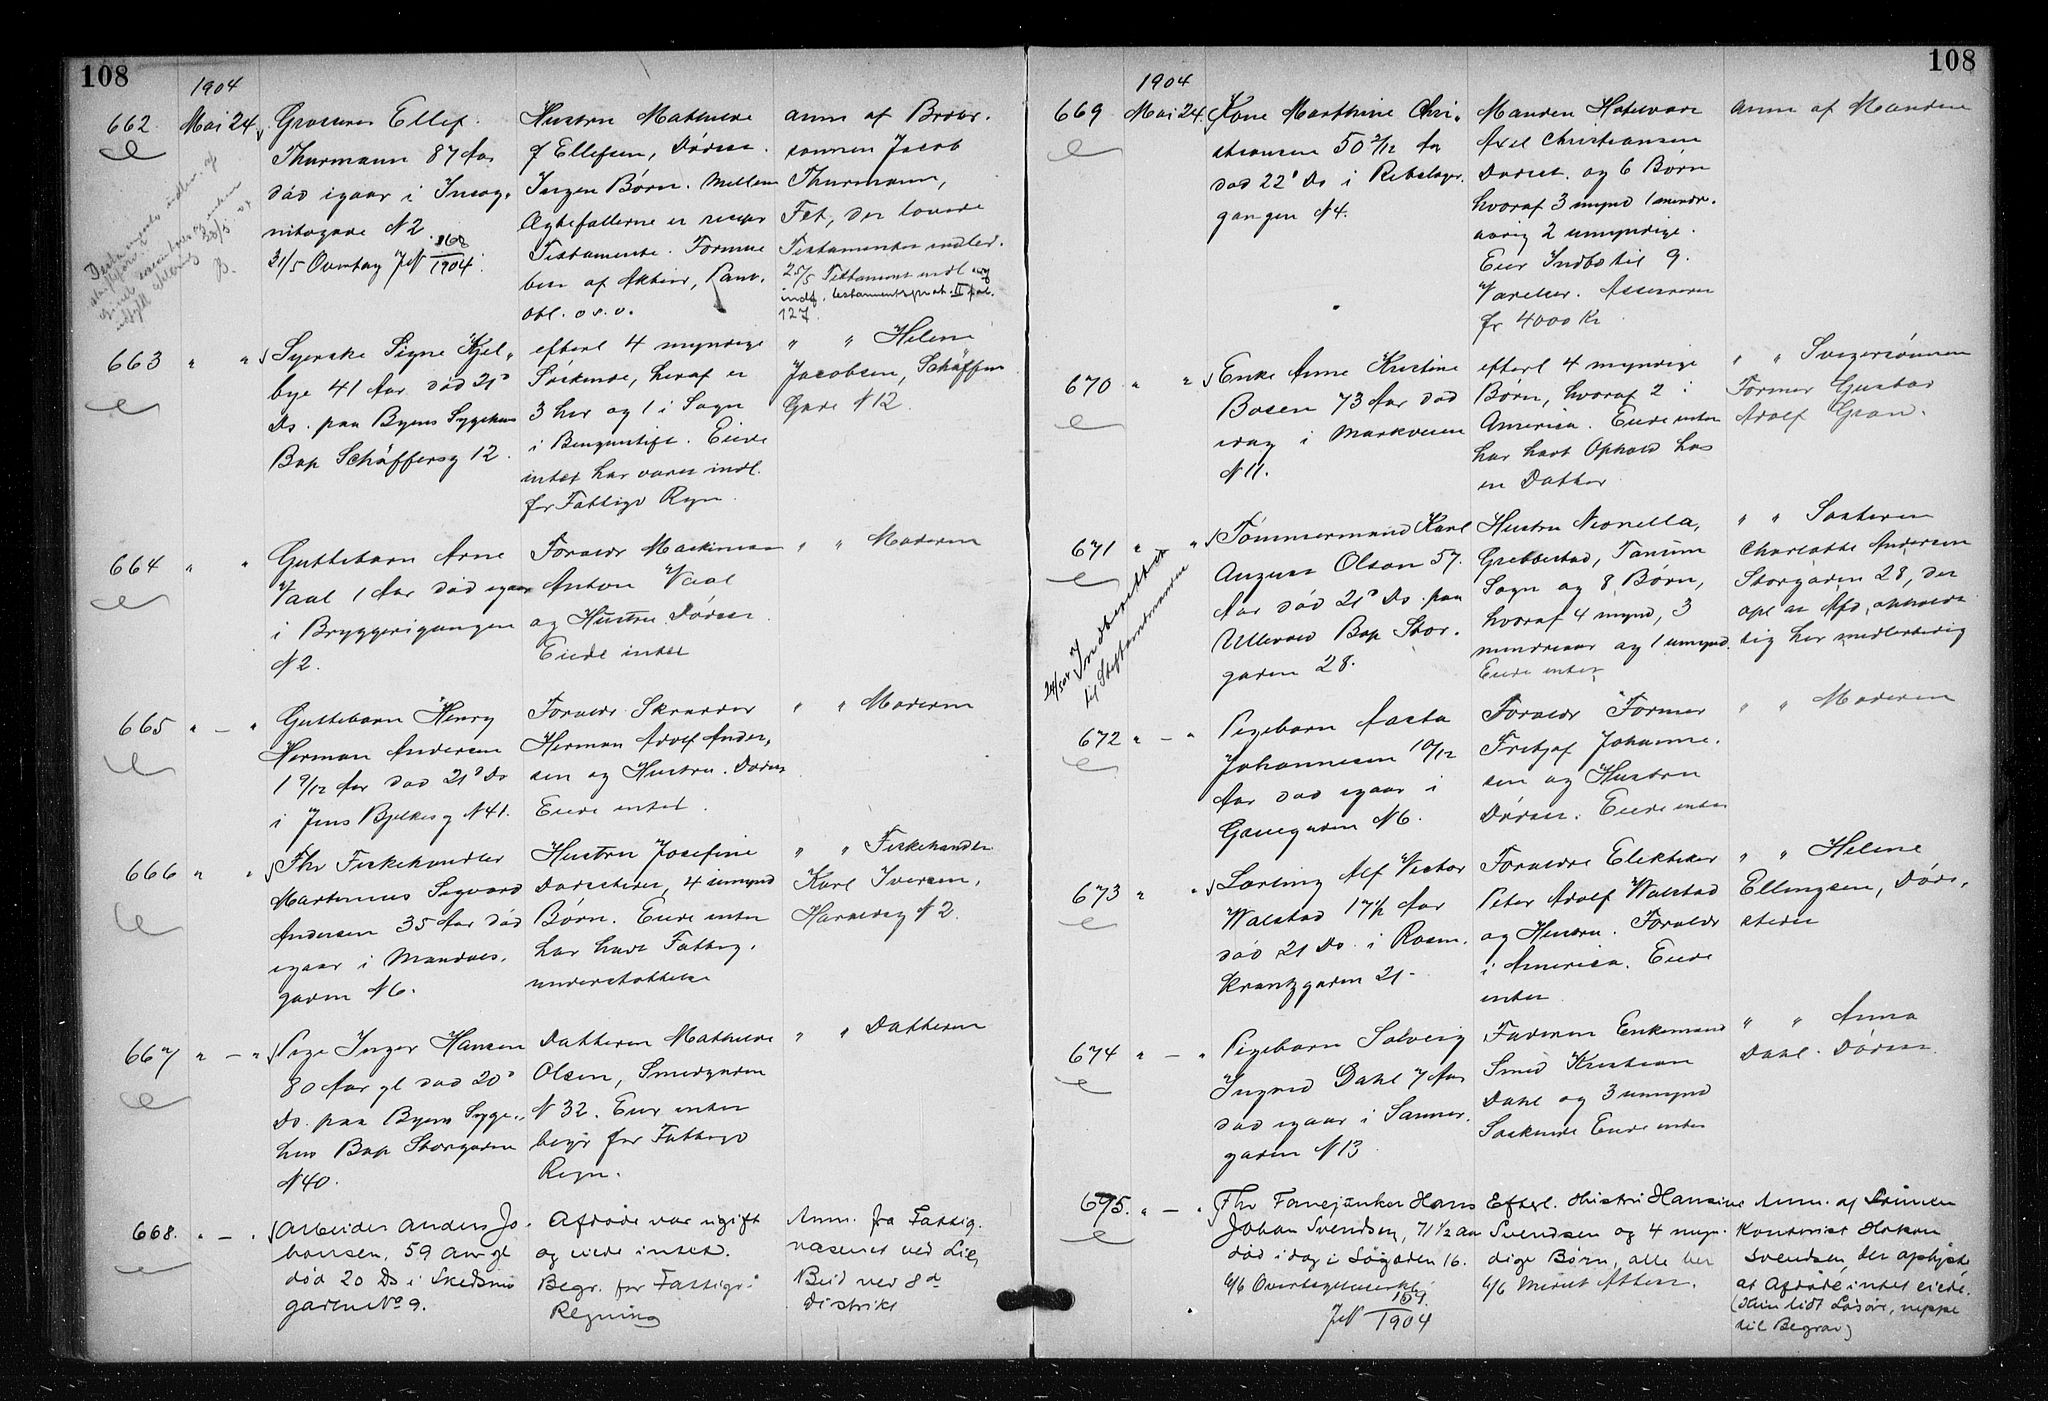 108
1904
662. Mai 24
Grosserer Ellef
Thurmann 87 Aar
død igaar i Incog-
nitogade N 2
31/5 Overtag JN 168/1904.
Hustru Mathilde
f Ellefsen, Dødsst.
Ingen Børn. Mellem
Ægtefællerne er
Testamente. Formue
best. af Aktier, Pant.
obl. o. s. v.
anm af Broder-
sønnen Jacob
Thurmann,
Fet, der lovede
Testamentet indlev.
25/5 Testament indl og
indf. testamentsprot. II fol.
127.
663 " "
Syerske Signe Kjel-
bye 41 Aar død 21'
Ds. paa Byens Sygehus
Bop Schäffersg 12.
efterl 4 myndige
Søskende, heraf er
3 her og 1 i Sogn
i Bergensstift. Eiede
intet har været indl.
for Fattigv Regn.
" " Helene
Jacobsen, Schäffers
Gade N 12.
664 " "
Guttebarn Arne
Vaal 1 Aar død igaar
i Bryggerigangen
N 2.
Foreldr Maskinist
Anton Vaal
og Hustru Dødsst
Eiede intet
" " Moderen
665 " — "
Guttebarn Henry
Herman Andersen
1 9/12 Aar død 21' Ds
i Jens Bjelkesg N 41.
Foreldr Skrædder
Herman Adolf Ander-
sen og Hustru. Dødsst
Eiede intet.
" " Moderen
666 " "
Fhv Fiskehandler
Martinius Sigvard
Andersen 35 Aar død
igaar i Mandals-
gaden N 6.
Hustru Josefine
Dødsstedet, 4 umynd
Børn. Eiede intet
har havt Fattig-
understøttelse
" " Fiskehandler
Karl Iversen,
Hausmsg N 2.
667 " — "
Pige Inger Hansen
80 Aar gl død 20'
Ds. paa Byens Syge-
hus Bop Storgaden
N 40.
Datteren Mathilde
Olsen, Smedgaden
N 32. Eier intet
begr for Fattigv
Regn.
" " Datteren
668. " — "
Arbeider Anders Jo-
hansen, 59 Aar gl
død 20 Ds i Skedsmo
gaden No 9.
Afdøde var ugift
og eiede intet.
Begr. for Fattigv.
Regning
Anm. fra Fattig-
væsenet ved Lie,
Bud ved 8d
Distrikt
108
1904
669 Mai 24.
Kone Marthine Chri-
stiansen 50 2/12 Aar
død 22' Ds i Rebslager-
gangen N 4.
Manden
Axel Christiansen
Dødsst. og 6 Børn
hvoraf 3 mynd 1 mindre-
aarig 2 umyndige.
Eier Indbo til 9.
Værelser. Assureret
for 4000 Kr
anm af Manden
670 " "
Enke Anne Kristine
Bosen 73 Aar død
idag i Markveien
N 11.
efterl 4 myndige
Børn, hvoraf 2 i
America. Eiede intet
har havt Ophold hos
en Datter
" " Svigersønnen
Former Gustav
Adolf Gran.
671 " "
24/5 04 Indberettet
til Stiftamtmanden
Tømmermand Karl
August Olson 57.
Aar død 21' Ds. paa
Ullevold Bop Stor-
gaden 28.
Hustru Neonella,
Grebbestad, Tanum
Sogn og 8 Børn,
hvoraf 4 mynd, 3
mindreaar og 1 umynd.
Eiede intet
" " Søsteren
Charlotte Andersen
Storgaden 28, der
opl at Afd. opholdt
sig her midlertidig
672 " — "
Pigebarn Aasta
Johannesen 10/12
Aar død igaar i
Gøtegaden N 6.
Foreldr Former
Fritjof Johanne-
sen og Hustru
Dødsst. Eiede intet
" " Moderen
673 " "
Lærling Alf Victor
Walstad 17 1/2 Aar
død 21 Ds. i Rosen-
krantzgaden 21-
Foreldre Elektriker
Peter Adolf Walstad
og Hustru. Foreldr
i America. Eiede
intet
" " Helene
Ellingsen, Døds-
stedet
674 " — "
Pigebarn Solveig
Ingrid Dahl 7 Aar
død igaar i Sanner-
gaden N 13
Faderen Enkemand
Smed Kristian
Dahl og 3 umynd
Søskende Eiede intet
" " Anna
Dahl. Dødsst.
675. " — "
Fhv Fanejunker Hans
Johan Svendsen, 71 1/2 aar
død idag i Søgaden 16.
6/6 Overtagelseserkl.
JN 167/1904
Efterl. Hustru Hansine
Svendsen og 4 myn-
dige Børn, alle her
6/6 Mindst Atten.
Anm. af Sønnen
Kontorist Haakon
Svendsen, der oplyste
at Afdøde intet eiede.
(kun lidt Løsøre, neppe
til Begrav)